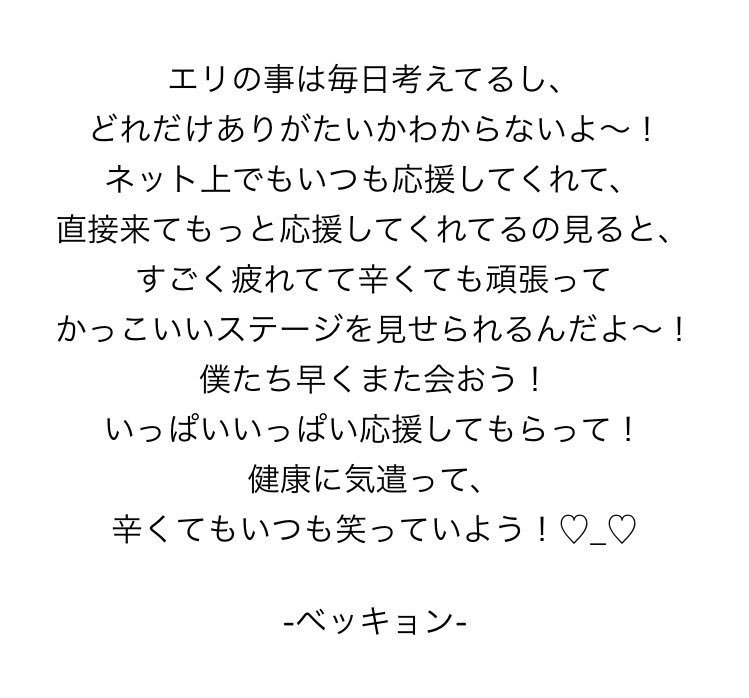 エリの事は毎日考えてるし、
どれだけありがたいかわからないよ〜！
ネット上でもいつも応援してくれて、
直接来てもっと応援してくれてるの見ると、
すごく疲れてて辛くても頑張って
かっこいいステージを見せられるんだよ〜！
僕たち早くまた会おう！
いっぱいいっぱい応援してもらって！
健康に気遣って、
辛くてもいつも笑っていよう！♡_♡
-ベッキョン-